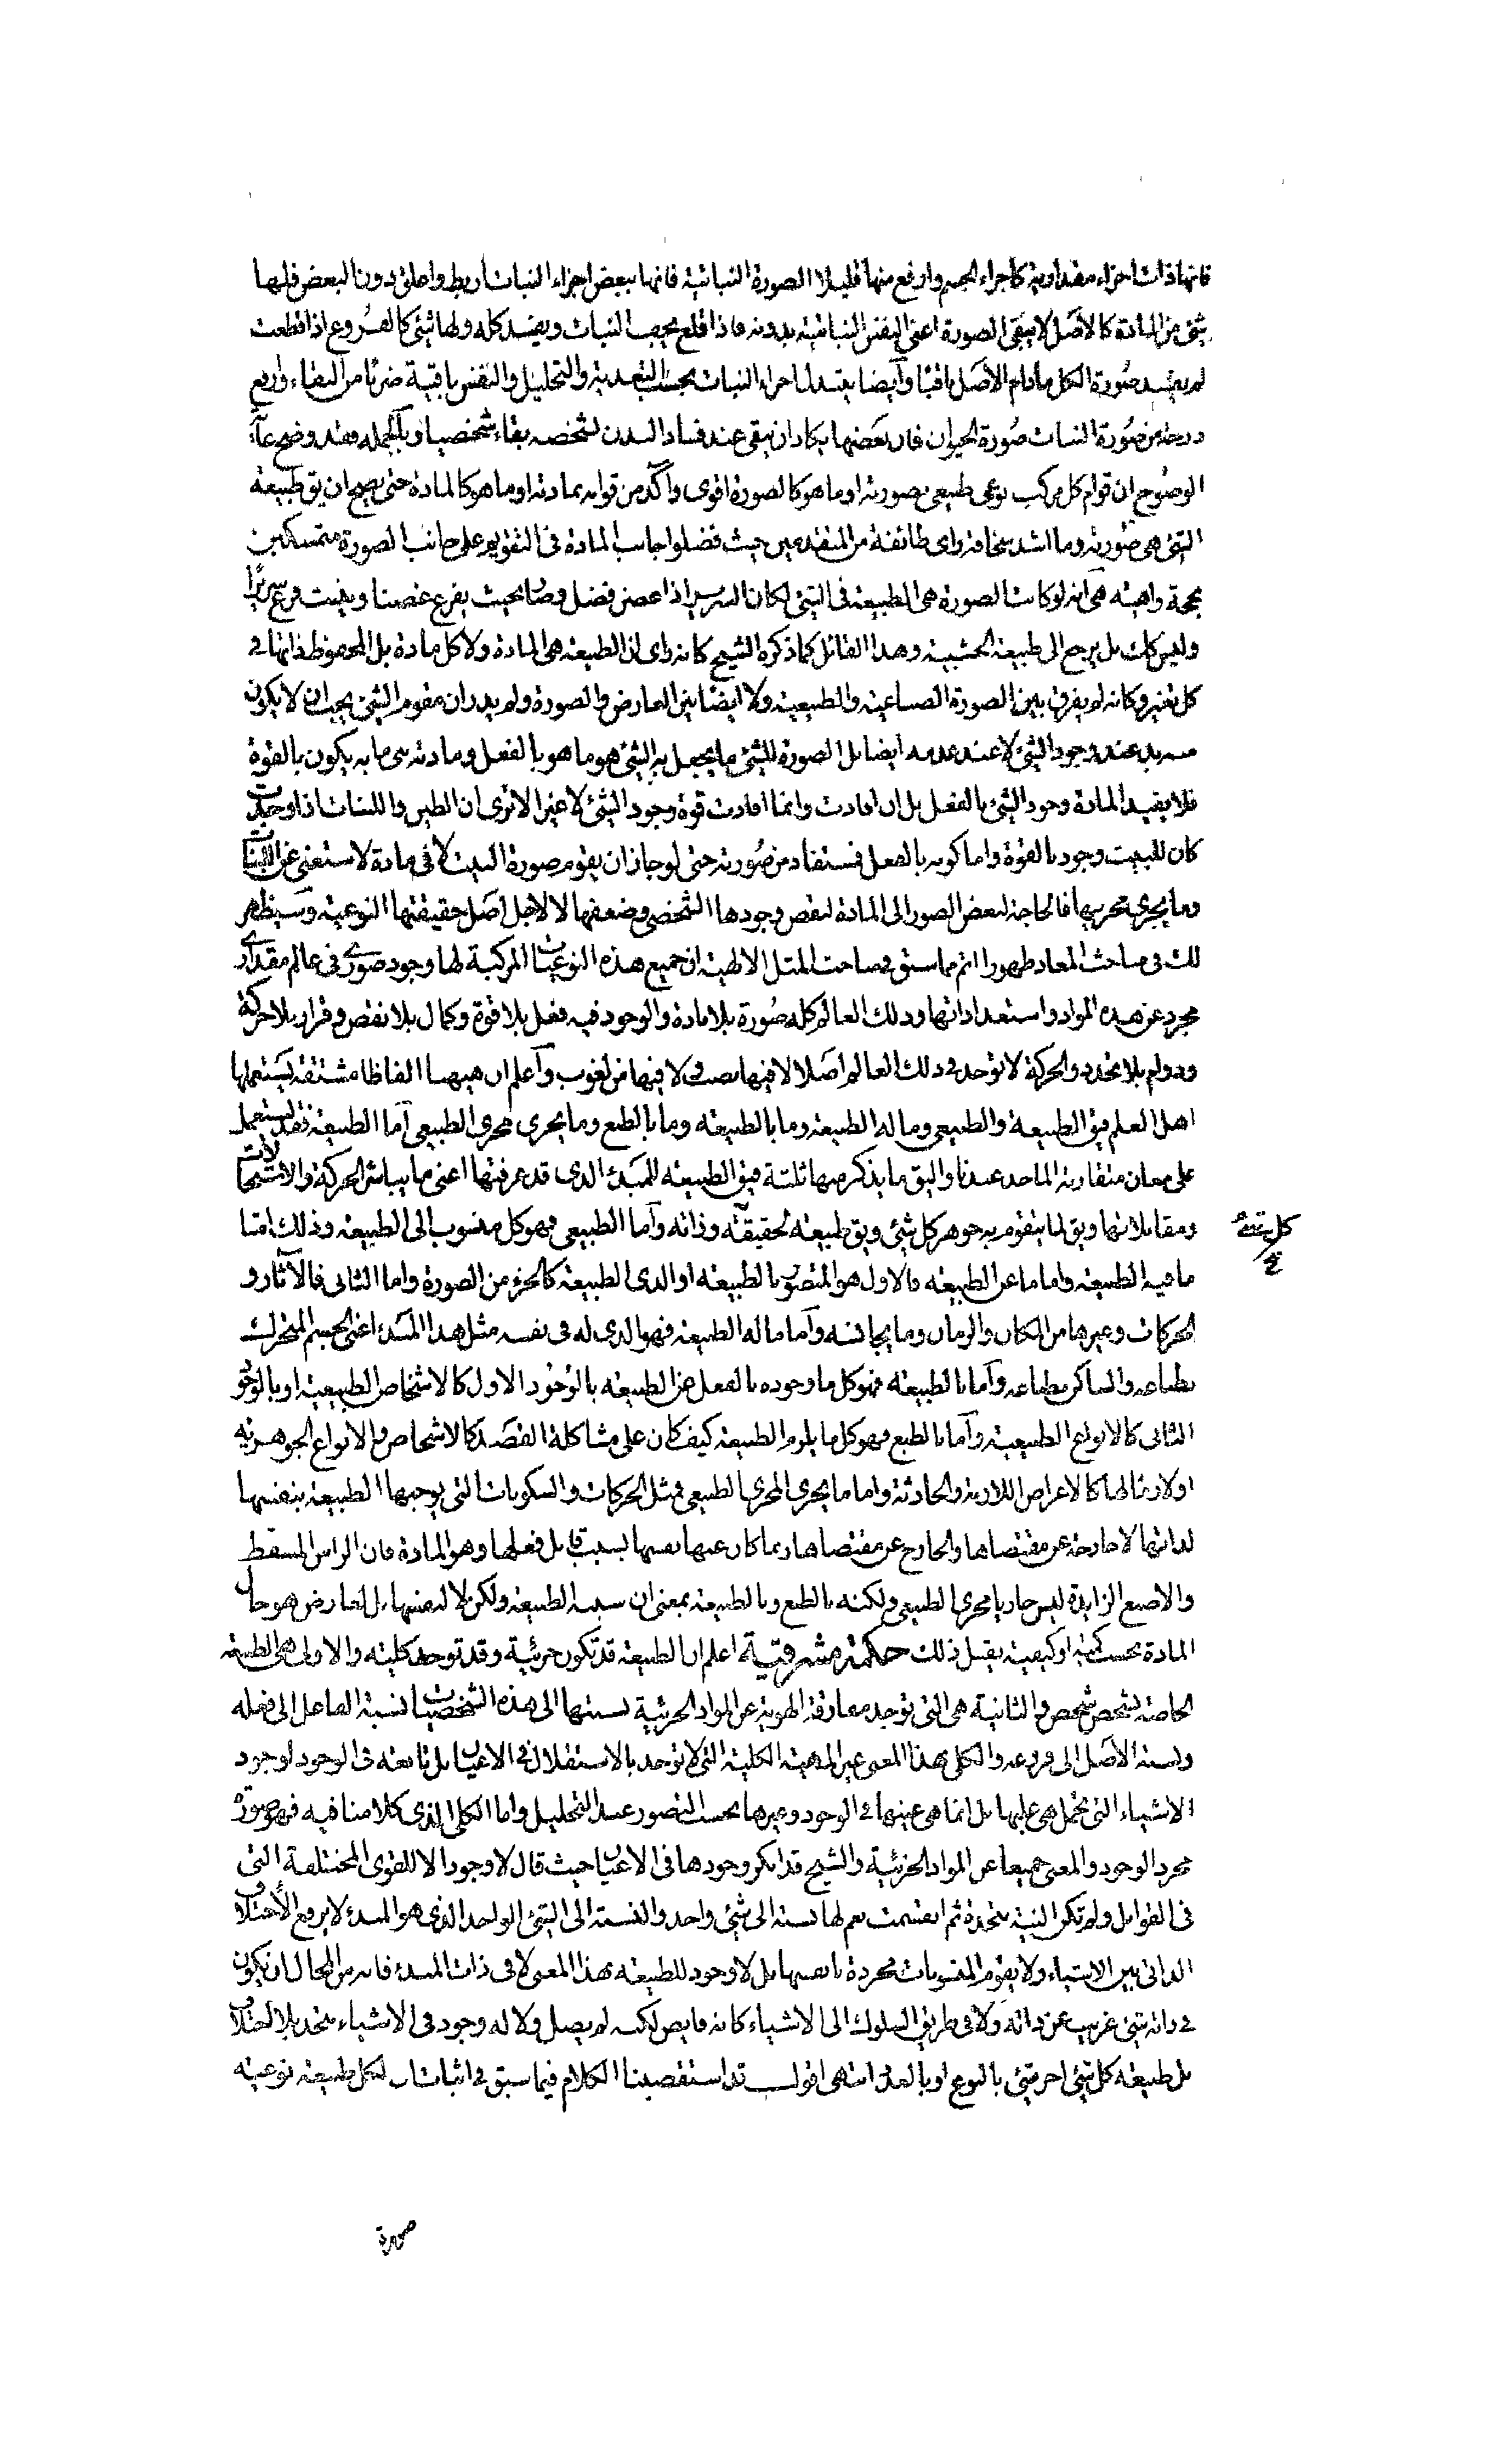 فانها ذات اجزاء مقدارية كاجزاء الجسم وارفع منها قليلا الصورة النباتية فانها ببعض اجزاء النبات اربط واعلق دون البعض فلها
شئ من المادة كالاصل لا يبقى الصورة اعنى النفس النباتية بدونه فاذا قلع يجف النبات ويفسد كله ولها شئ كالفروع اذا قطعت
لم يفسد صورة الكل مادام الاصل باقيا وايضا يتبدل اجزاء النبات بحسب التغذية والتحليل والنفس باقية ضربا من البقاء وارفع
درجة من صورة النبات صورة الحيوان فان بعضها يكاد ان يبقى عند فساد البدن لشخصه بقاء شخصيا وبالجملة فقد وضح غاية
الوضوح ان قوام كل مركب نوعى طبيعى بصورته او ما هو كالصورة اقوى واكد من قوامه بمادته او ما هو كالمادة حتى يصح ان يق طبيعة
الشئ هى صورته وما اشد سخافة راى طائفة من المتقدمين حيث فضلوا جانب المادة فى التقويم على جانب الصورة متمسكين
بحجة واهية هى انه لو كانت الصورة هى الطبيعة فى الشئ لكان السرير اذا عفن فصل وصار بحيث يفرع غصنا وينبت فرع سريرا
وليس كك بل يرجع الى طبيعة الخشبية وهذا القائل كما ذكره الشيخ كانه راى ان الطبيعة هى المادة ولا كل مادة بل المحفوظ ذاتها فى
كل تغير وكانه لم يفرق بين الصورة الصناعية والطبيعية ولا ايضا بين العارض والصورة ولم يدر ان مقوم الشئ يجب ان لا يكون
منه بد عند وجود الشئ لا عند عدمه ايضا بل الصورة للشئ ما يجعل به الشئ هو ما هو بالفعل ومادته هى ما به يكون بالقوة
فلا يفيد المادة وجود الشئ بالفعل بل ان افادت وانما افادت قوة وجود الشئ لا غير الا ترى ان الطين واللبنات اذا وجدت
كان للبيت وجود بالقوة واما كونه بالفعل فمستفاد من صورته حتى لو جاز ان يقوم صورة البيت لا فى مادة لاستغنى عن اللبنات
وما يجرى مجريها فالحاجة لبعض الصور الى المادة لنقص وجودها الشخصى وضعفها لا لاجل اصل حقيقتها النوعية وسيظهر
لك فى مباحث المعاد ظهورا اتم مما سبق فى مباحث المثل الالهية ان جميع هذه النوعيات المركبة لها وجود صورى فى عالم مقدارى
مجرد عن هذه المواد واستعداداتها وذلك العالم كله صورة بلا مادة والوجود فيه فعل بلا قوة وكمال بلا نقص وقرار بلا حركة
ودوام بلا تجدد والحركة لا توجد فى ذلك العالم اصلا لا فيها نصب ولا فيها من لغوب واعلم ان هيهنا الفاظا مشتقة يستعملها
اهل العلم فيق الطبيعة والطبيعى وما له الطبيعة وما بالطبيعة وما بالطبع وما يجرى مجرى الطبيعى اما الطبيعة فقد يستعمل
على معان متقاربة الماخذ عندنا واليق ما يذكر منها ثلثة فيق الطبيعة للمبدء الذى قد عرفتها اعنى ما يباشر الحركة والاستحالات
ومقابلاتها ويق لما يتقوم به جوهر كل شئ ويق طبيعة لحقيقته وذاته واما الطبيعى فهو كل منسوب الى الطبيعة وذلك اما
ما فيه الطبيعة واما ما عن الطبيعة فالاول هو المتصور بالطبيعة او الذى الطبيعة كالجزء من الصورة واما الثانى فالآثار و
الحركات وغيرها من المكان والزمان وما يجانسه واما ما له الطبيعة فهو الذى له فى نفسه مثل هذا المبدء اعنى الجسم المتحرك
بطباعه والساكن بطباعه واما ما بالطبيعة فهو كل ما وجوده بالفعل عن الطبيعة بالوجود الاول كالاشخاص الطبيعية او بالوجود
الثانى كالانواع الطبيعية واما ما بالطبع فهو كل ما يلزم الطبيعة كيف كان على مشاكلة القصد كالاشخاص والانواع الجوهرية
او لازما لها كالاعراض اللازمة والحادثة واما ما يجرى المجرى الطبيعى فمثل الحركات والسكونات التى يوجبها الطبيعة بنفسها
لذاتها لا خارجة عن مقتضاها والخارج عن مقتضاها ربما كان عنها نفسها بسبب قابل فعلها وهو المادة فان الراس المسقط
والاصبع الزايدة ليس جاريا مجرى الطبيعى ولكنه بالطبع وبالطبيعة بمعنى ان سببه الطبيعة ولكن لا لنفسها بل لعارض هو حال
المادة بحسب كمية او كيفية يقبل ذلك حكمة مشرقية اعلم ان الطبيعة قد تكون جزئية وقد توجد كلية والاولى هى الطبيعة
الخاصة بشخص شخص والثانية هى التى توجد مفارقة الهوية عن المواد الجزئية نسبتها الى هذه الشخصيات نسبة الفاعل الى فعله
ونسبة الاصل الى فروعه والكلى بهذا المعنى غير المهية الكلية التى لا توجد بالاستقلال فى الاعيان بل تابعة فى الوجود لوجود
الاشياء التى تحمل هى عليها بل انما هى عينها فى الوجود وغيرها بحسب التصور عند التحليل واما الكلى الذى كلامنا فيه فهو صورة
مجرد الوجود والمعنى جميعا عن المواد الجزئية والشيخ قد انكر وجودها فى الاعيان حيث قال لا وجود الا للقوى المختلفة التى
فى القوابل ولم تكن البتة متحدة ثم انقسمت نعم لها نسبة الى شئ واحد والنسبة الى الشئ الواحد الذى هو المبدء لا يرفع الاختلاف
الذاتى بين الاشياء ولا يقوم المنسوبات مجردة بانفسها بل لا وجود للطبيعة بهذا المعنى لا فى ذات المبدء فانه من المحال ان يكون
فى ذاته شئ غريب عن ذاته ولا فى طريق السلوك الى الاشياء كانه فايض لكنه لم يصل ولا له وجود فى الاشياء متحد بلا اختلاف
بل طبيعة كل شئ اخر شئ بالنوع او بالعدد انتهى اقول قد استقصينا الكلام فيما سبق فى اثبات ان لكل طبيعة نوعية
صورة